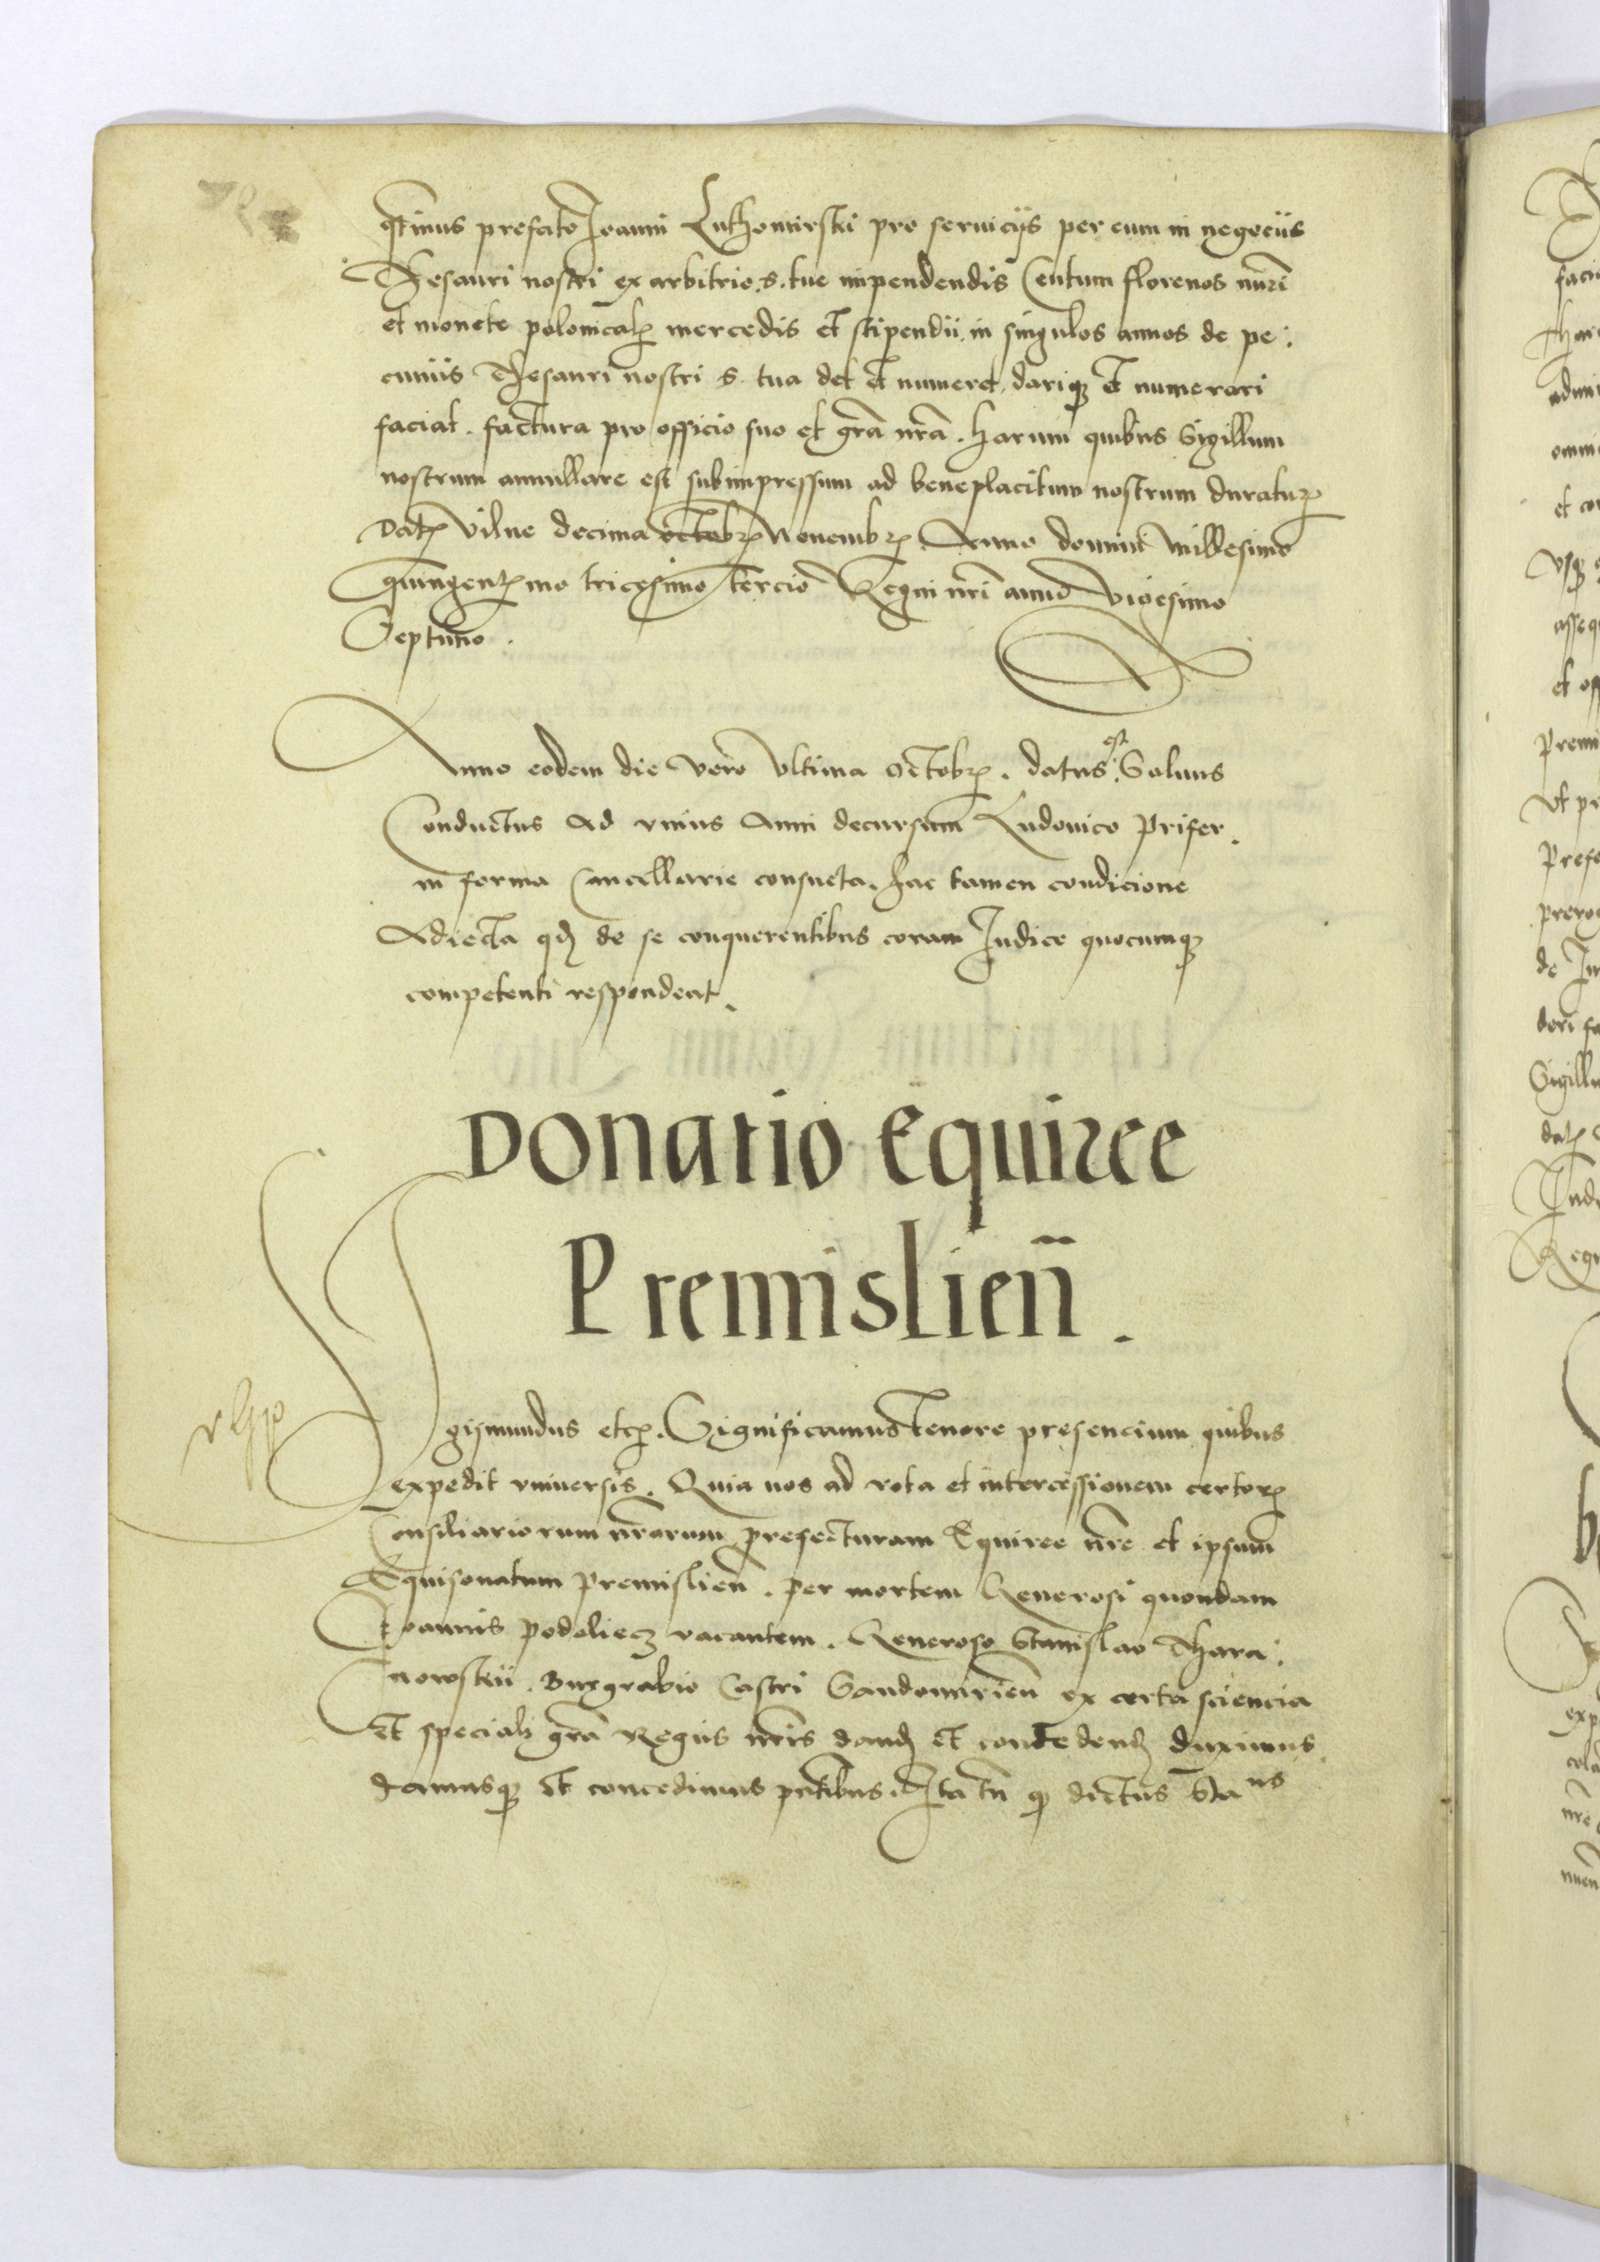 qtinus prefato Joanni Luthomirski pro seruicijs per eum in negocijs
Thesauri nostri ex arbitrio s. tue impendendis Centum florenos nuri
et monete polonicalis mercedis et stipendii in singulos annos de pe:
cuniis Thesauri nostri S. tua det et numeret dariqȝ et numerari
faciat. factura pro officio suo et gra nra. Harum quibus Sigillum
nostrum annullare est subimpressum ad beneplacitum nostrum duratur
Dat Vilne decima octobr Nouembr Anno domini Millesimo
quingentmo tricesimo tercio Regni nri anno Vicesimo
Septimo.
Anno eodem die vero vltima octobr. datus est Saluus
Conductus ad vnius Anni decursum Ludouico Prifer.
in forma Cancellarie consueta. hac tamen condicione
Adiecta qd de se conquerentibus coram Judice quocumqȝ
competenti respondeat.
Donatio Equiree
Premislien̄.
Sigismundus etc. Significamus Tenore presencium quibus
expedit vniuersis. Quia nos ad vota et intercessionem certor
Consiliariorum nrorum prefecturam Equiree nre et ipsum
Equisonatum Premislien. per mortem Generosi quondam
Joannis Podoliecz vacantem. Generoso Stanislao Thara:
nowskii. Burgrabio Castri Sandomirien ex certa sciencia
Et speciali gra Regiis nris dand et concedend duximus
damusqȝ Et concedimus pntibus. Ita tn qȝ dictus Sta us